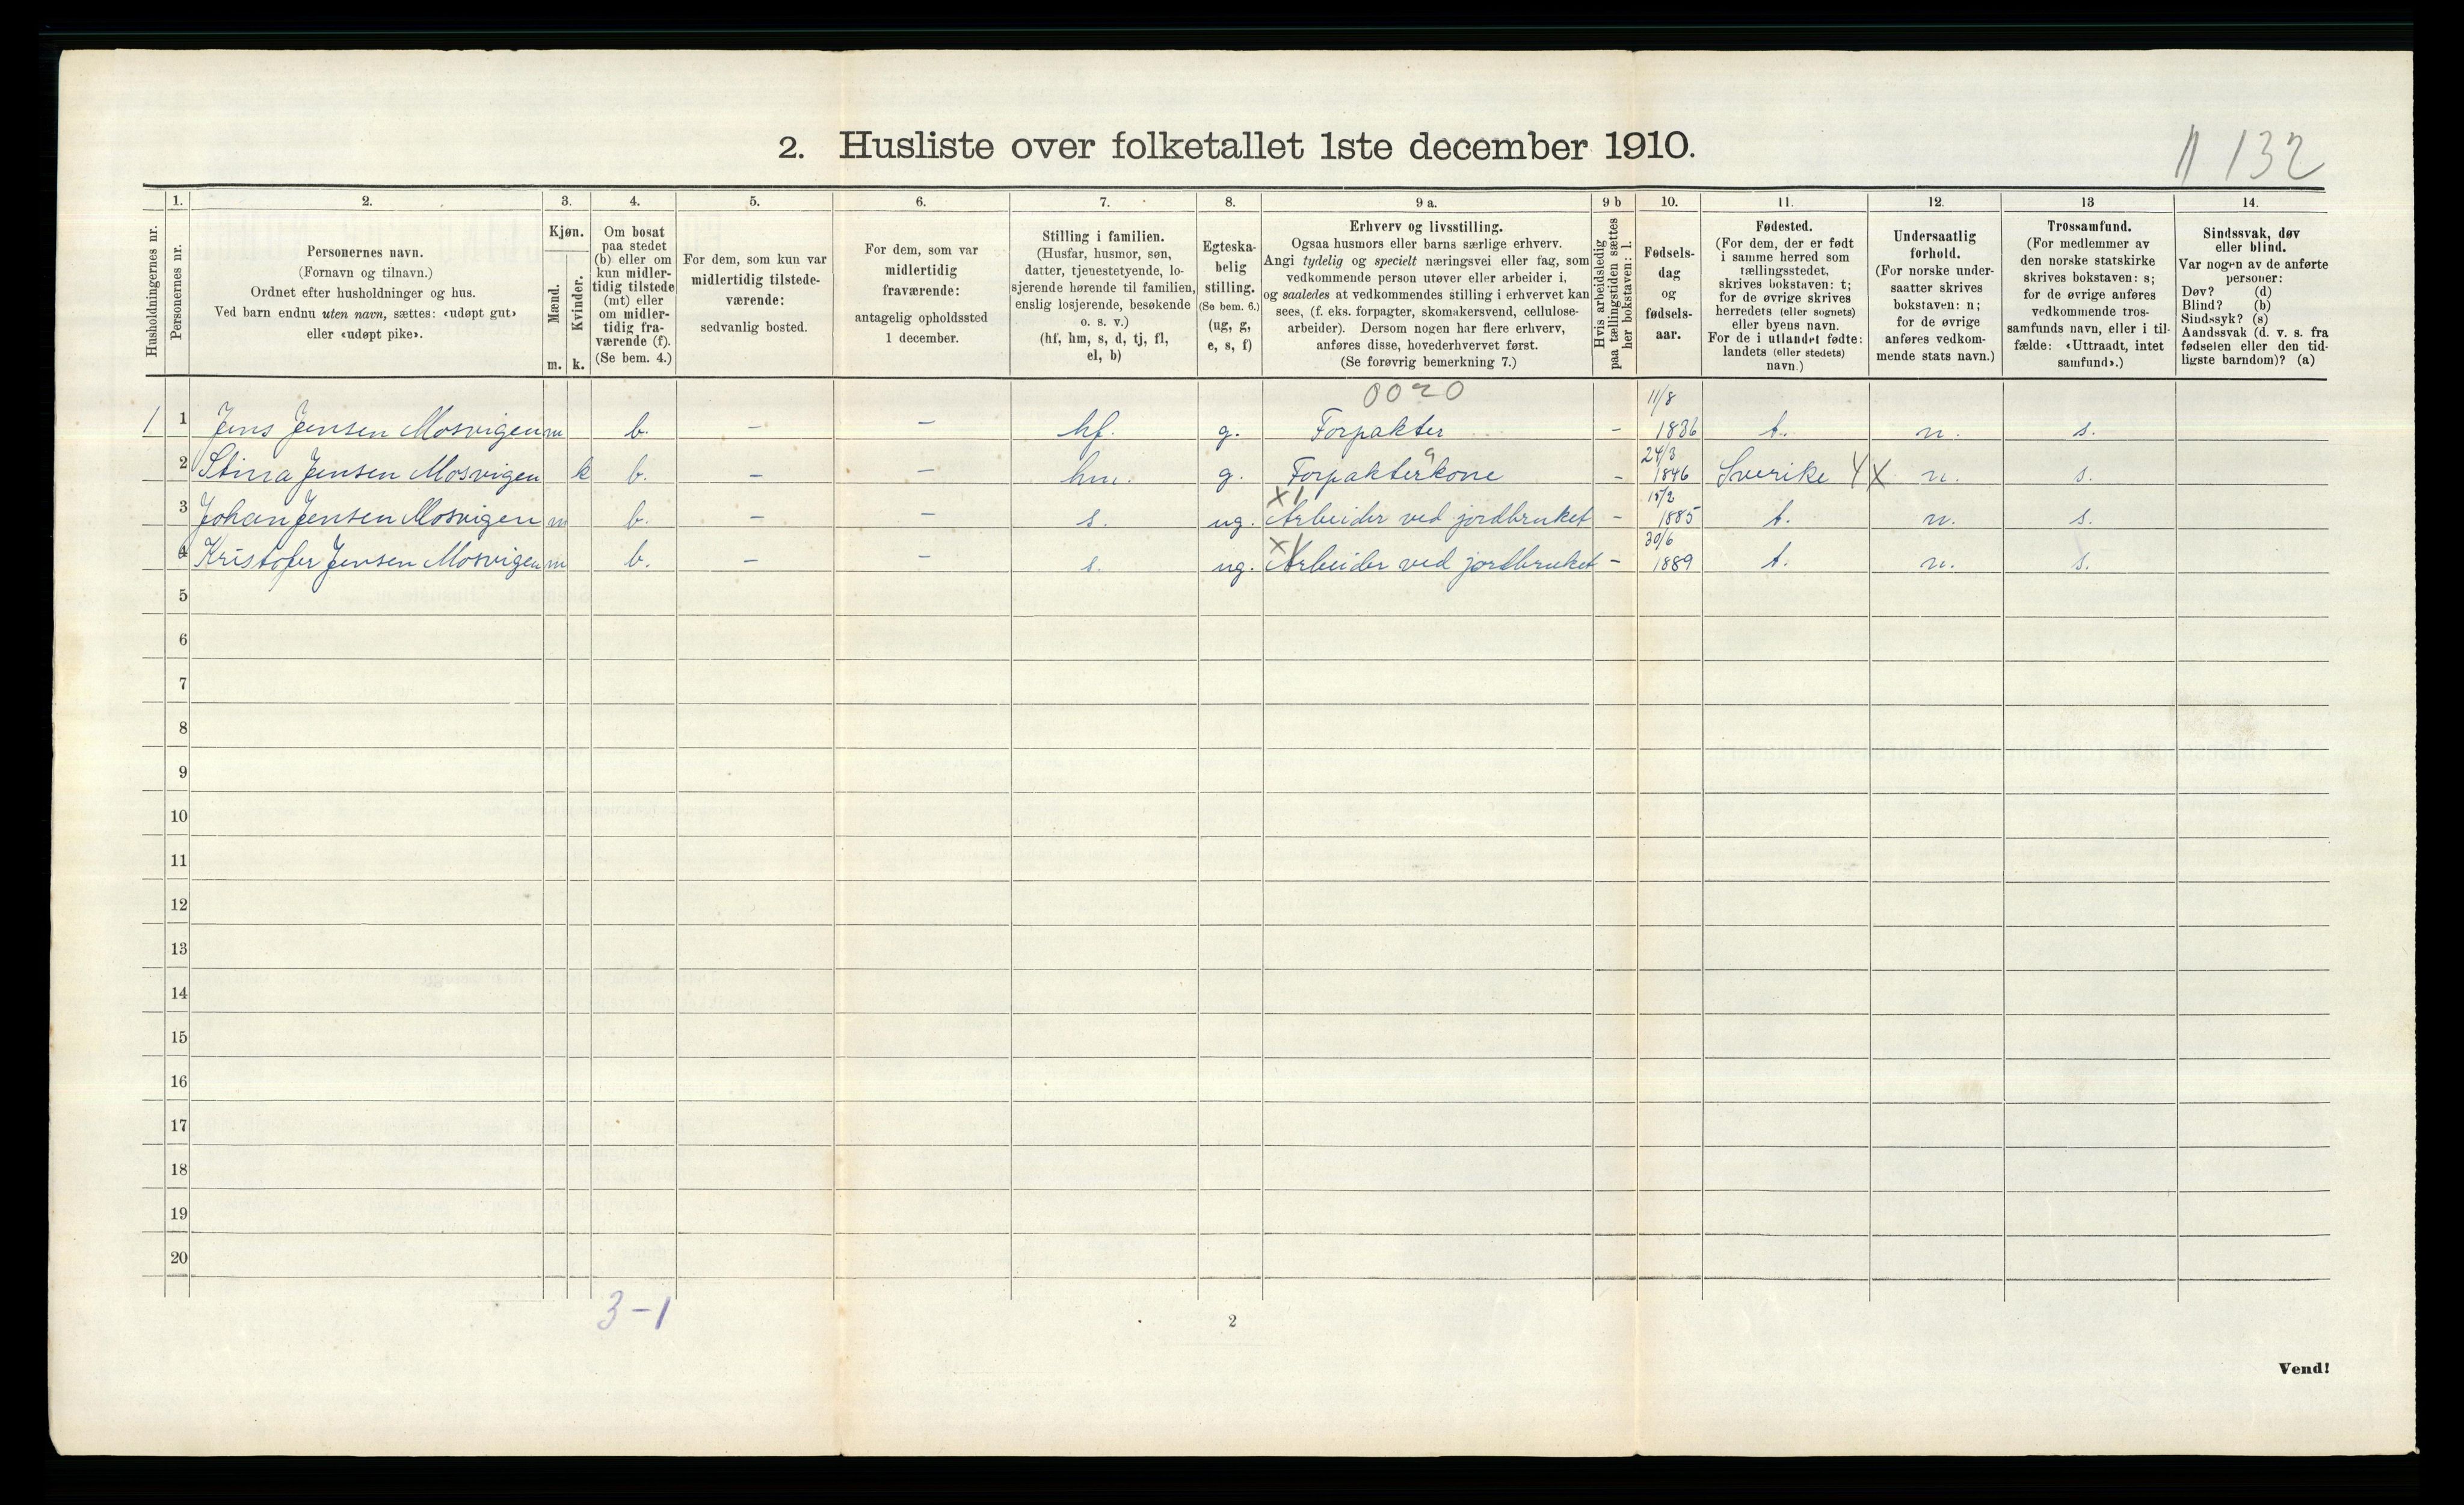 2. Husliste over folketallet 1ste december 1910.
132
Husholdningernes nr.
1.
Personernes nr.
2.
Personernes navn.
(Fornavn og tilnavn.)
Ordnet efter husholdninger og hus.
Ved barn endnu uten navn, sættes: «udøpt gut»
eller «udøpt pike».
3.
Kjøn.
Mænd.
Kvinder.
m. k.
4.
Om bosat
paa stedet
(b) eller om
kun midler-
tidig tilstede
(mt) eller
om midler-
tidig fra-
værende (f).
(Se bem. 4.)
5.
For dem, som kun var
midlertidig tilstede-
værende:
sedvanlig bosted.
6.
For dem, som var
midlertidig
fraværende:
antagelig opholdssted
1 december.
7.
Stilling i familien.
(Husfar, husmor, søn,
datter, tjenestetyende, lo-
sjerende hørende til familien,
enslig losjerende, besøkende
o. s. v.)
(hf, hm, s, d, tj, fl,
el, b)
8.
Egteska-
belig
stilling.
(Se bem. 6.)
(ug, g,
e, s, f)
9 a.
Erhverv og livsstilling.
Ogsaa husmors eller barns særlige erhverv.
Angi tydelig og specielt næringsvei eller fag, som
vedkommende person utøver eller arbeider i,
og saaledes at vedkommendes stilling i erhvervet kan
sees, (f. eks. forpagter, skomakersvend, cellulose-
arbeider). Dersom nogen har flere erhverv,
anføres disse, hovederhvervet først.
(Se forøvrig bemerkning 7.)
9 b
Hvis arbeidsledig
paa tællingstiden sættes
her bokstaven: l.
10.
Fødsels-
dag
og
fødsels-
aar.
11.
Fødested.
(For dem, der er født
i samme herred som
tællingsstedet,
skrives bokstaven: t;
for de øvrige skrives
herredets (eller sognets)
eller byens navn.
For de i utlandet fødte:
landets (eller stedets)
navn.)
12.
Undersaatlig
forhold.
(For norske under-
saatter skrives
bokstaven: n;
for de øvrige
anføres vedkom-
mende stats navn.)
13
Trossamfund.
(For medlemmer av
den norske statskirke
skrives bokstaven: s;
for de øvrige anføres
vedkommende tros-
samfunds navn, eller i til-
fælde: «Uttraadt, intet
samfund».)
14.
Sindssvak, døv
eller blind.
Var nogen av de anførte
personer:
Døv? (d)
Blind? (b)
Sindssyk? (s)
Aandssvak (d. v. s. fra
fødselen eller den tid-
ligste barndom)? (a)
0020
11/8
1 1 Jens Jensen Mosvigen m b. - - hf. g. Forpakter - 1836 t. n. s.
24/3
2 Stina Jensen Mosvigen k b. - - hm. g. Forpakterkone - 1846 Sverike X n. s.
15/2
3 Johan Jensen Mosvigen m b. - - s. ug. X1 Arbeider ved jordbruket - 1885 t. n. s.
30/6
4 Kristofer Jensen Mosvigen m b. - - s. ug. X1 Arbeider ved jordbruket - 1889 t. n. s.
5
6
7
8
9
10
11
12
13
14
15
16
17
18
19
20
3-1
2
Vend!